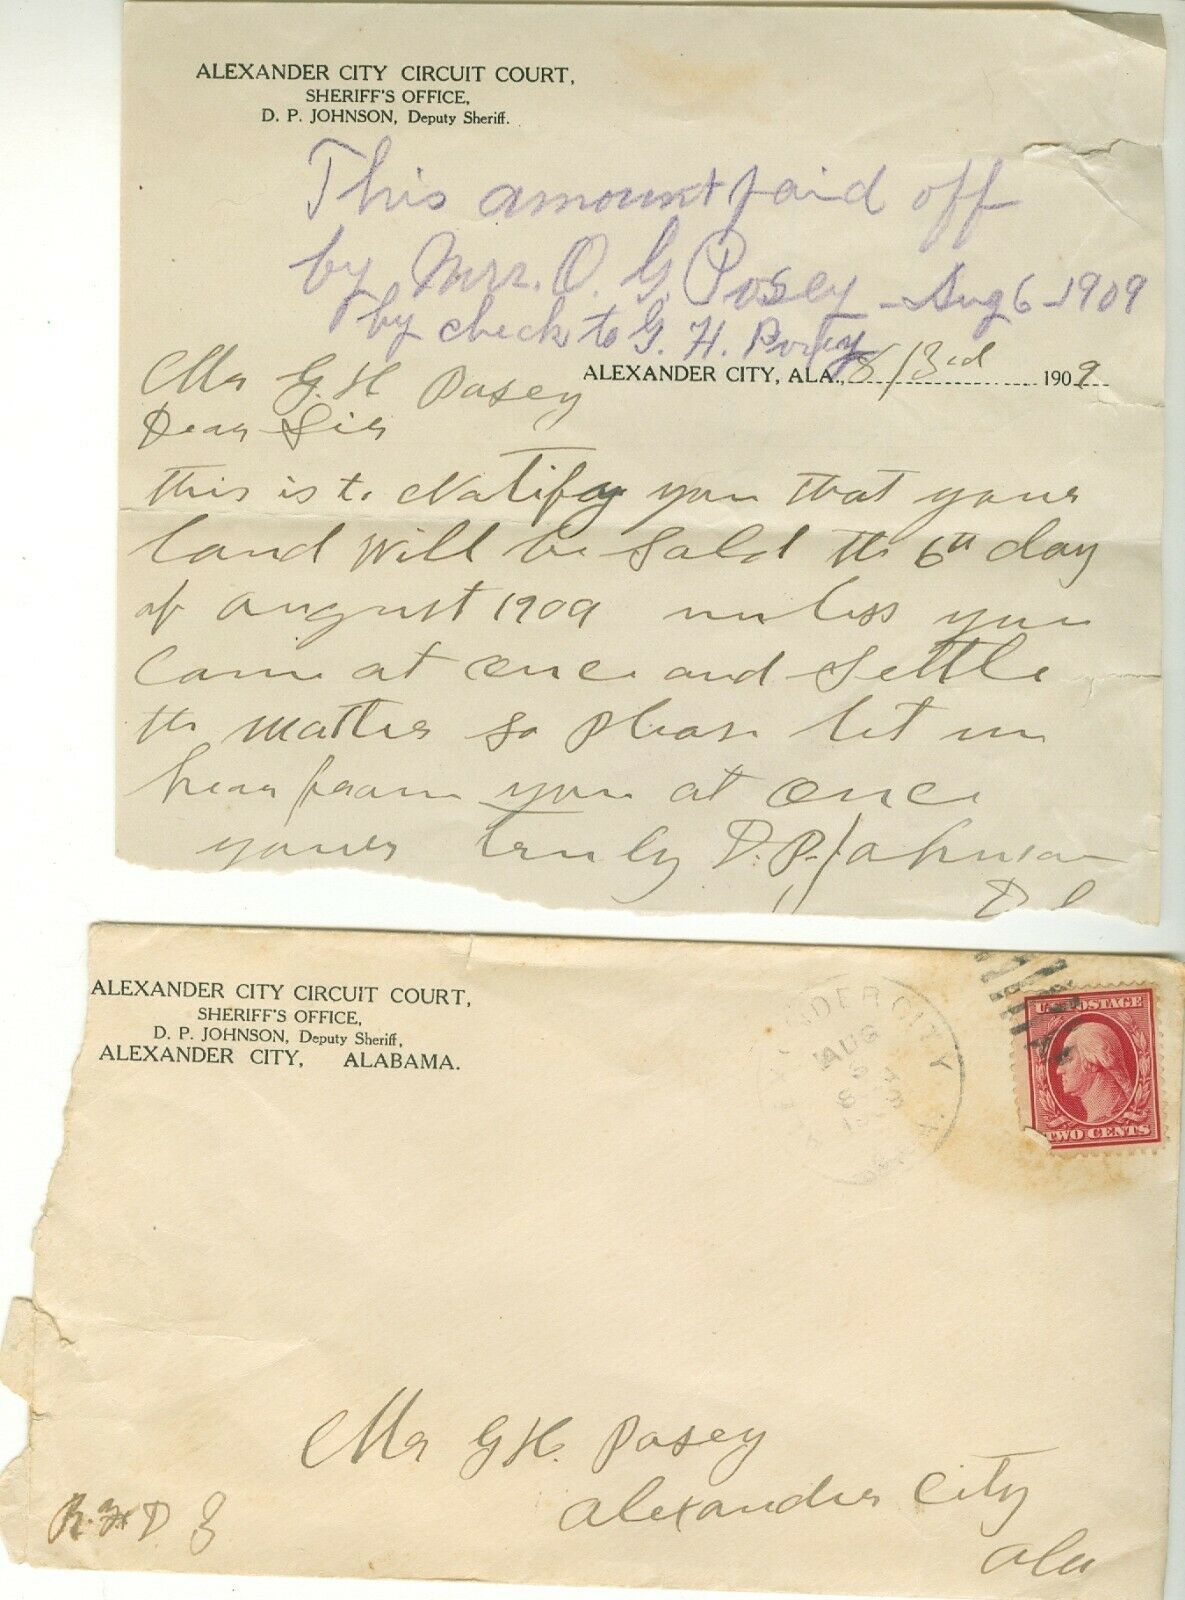 ALEXANDER CITY CIRCUIT COURT,
SHERIFF'S OFFICE,
D. P. JOHNSON, Deputy Sheriff.
This amount paid off
by Mrs. O. G. Posey - Aug 6 - 1909
by check to G. H. Posey
ALEXANDER CITY, ALA., 8/3rd 1909
Mr G H Posey
Dear Sir
this is to Notify you that your
land will be Sold the 6th day
of august 1909 unless you
Come at once and Settle
the matter so please let me
hear from you at once
yours truly D.P. Johnson
ALEXANDER CITY CIRCUIT COURT,
SHERIFF'S OFFICE,
D. P. JOHNSON, Deputy Sheriff,
ALEXANDER CITY, ALABAMA.
ALEXANDER CITY
AUG
U.S. POSTAGE
TWO CENTS
Mr G H. Posey
alexander City
Ala
R.F.D 3